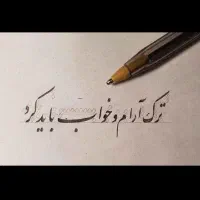 ترک آرام و خواب باید کرد